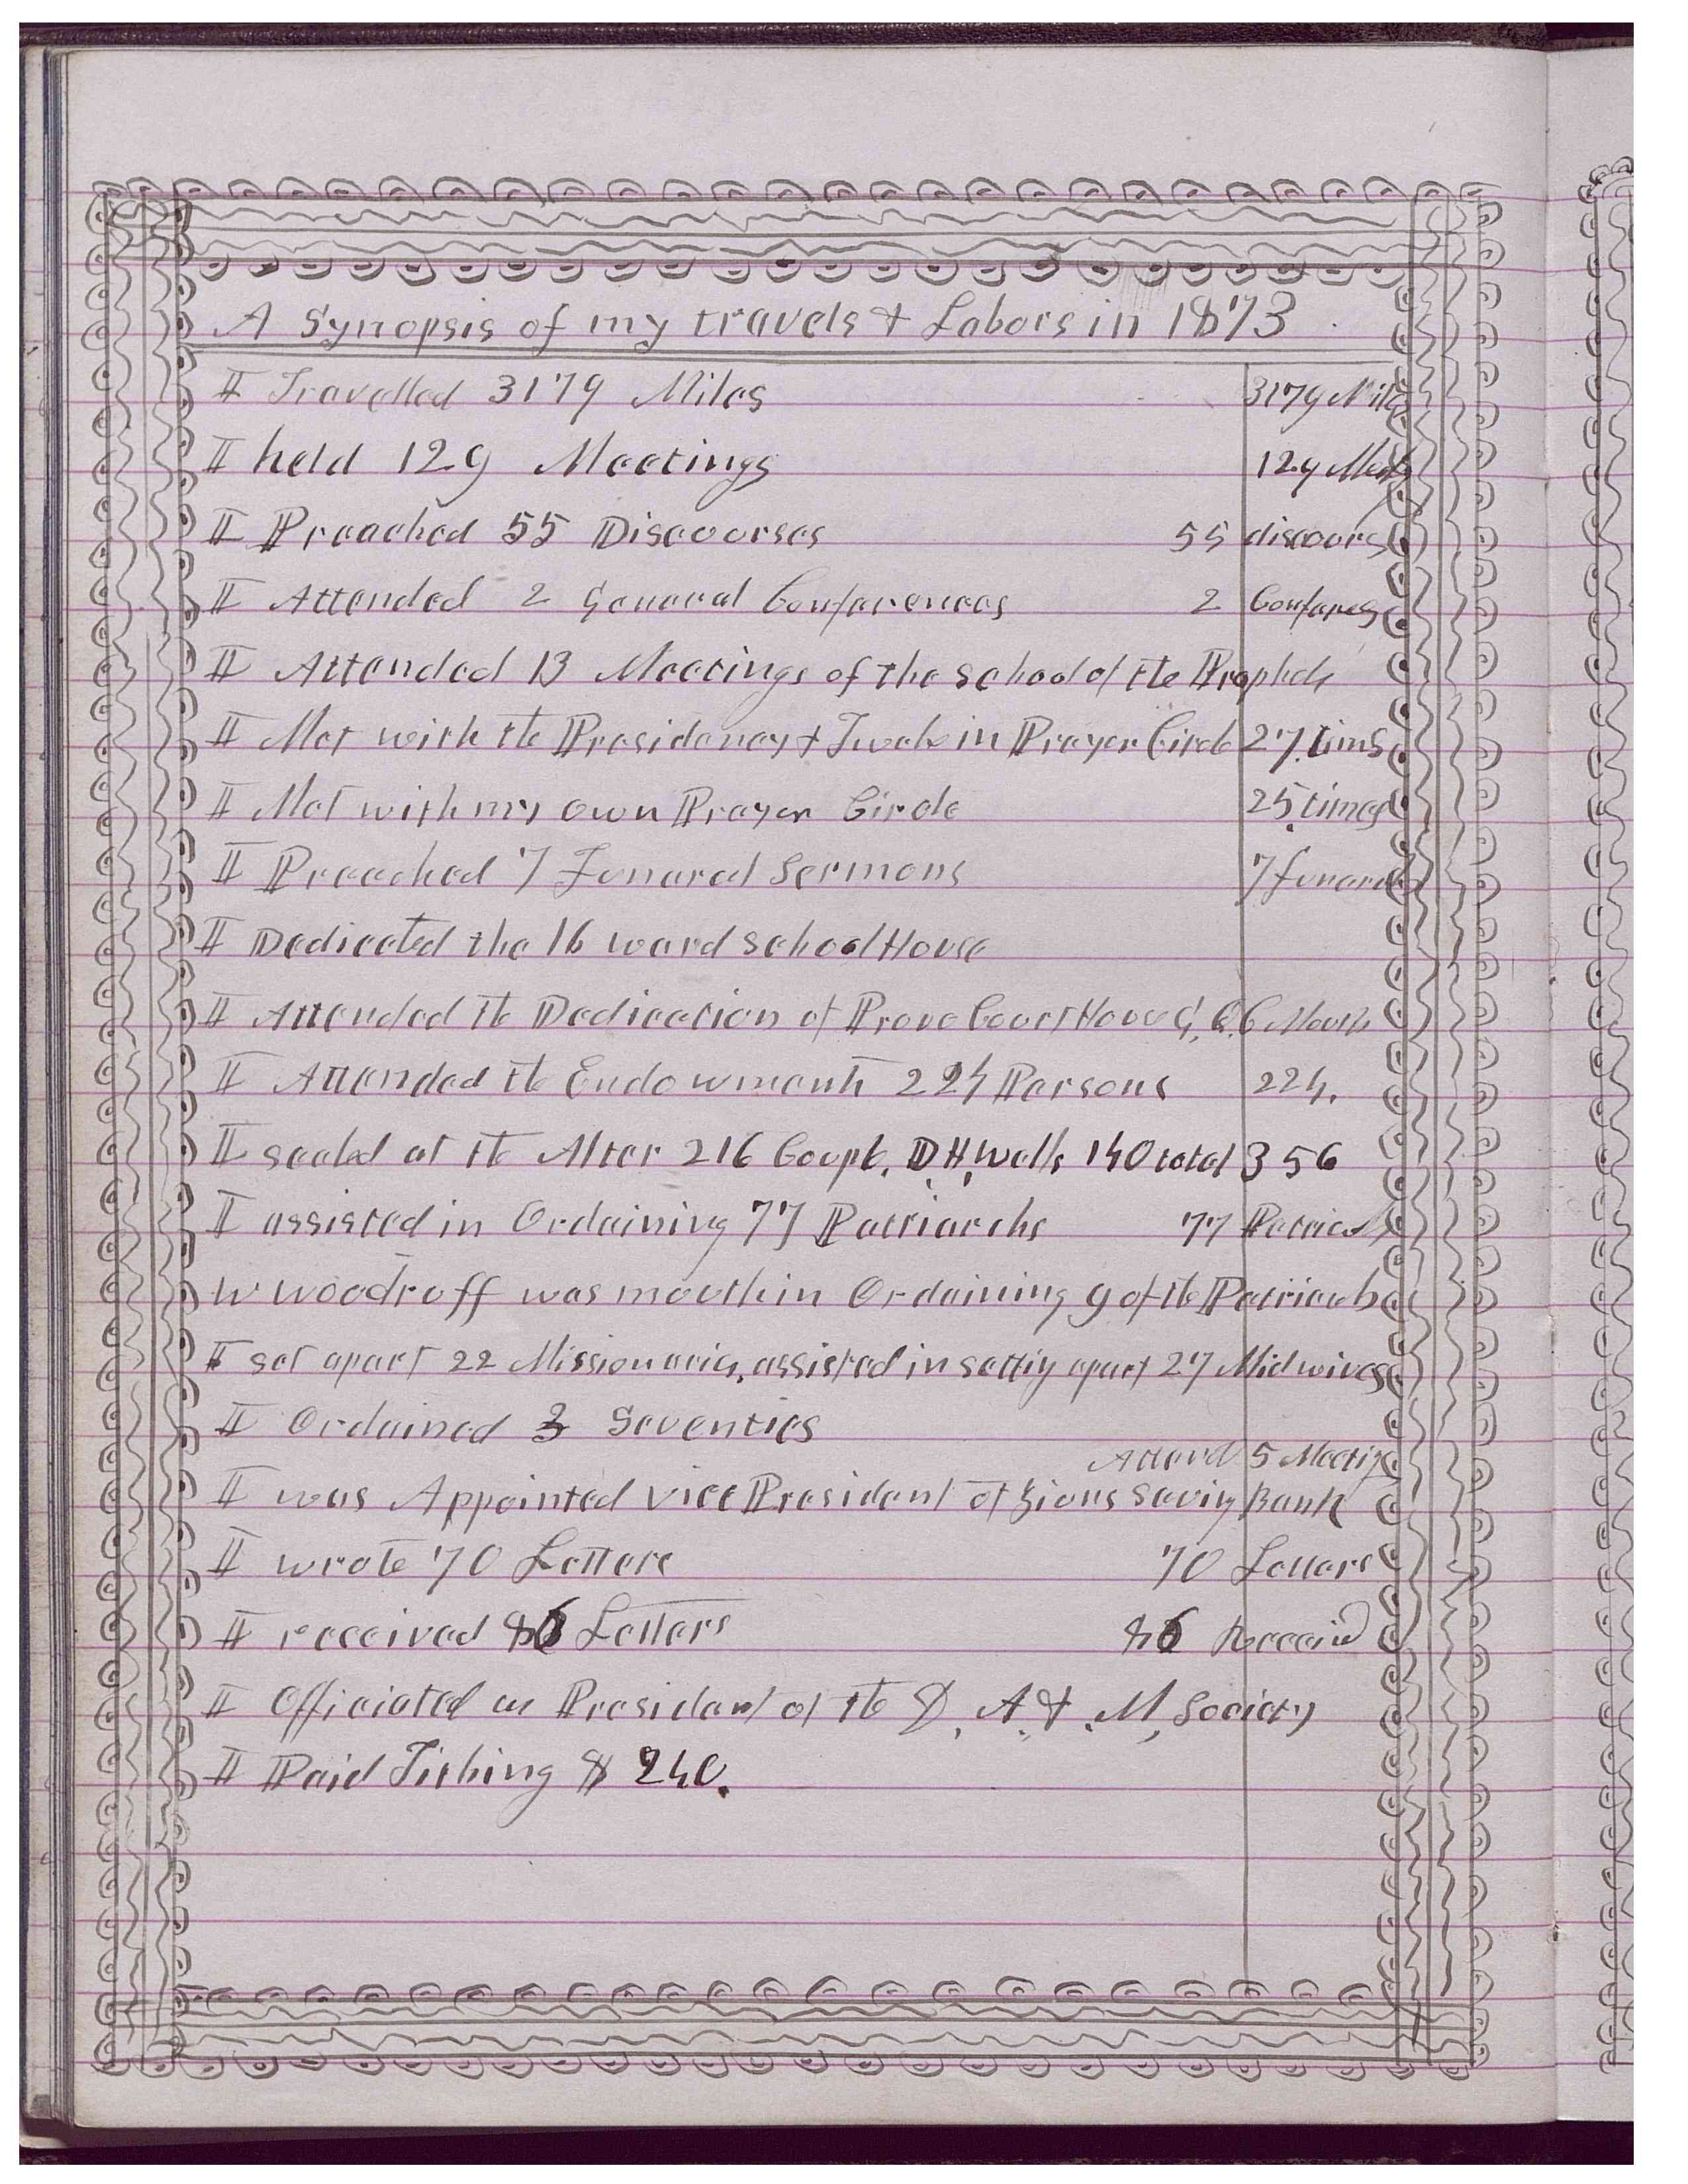 A Synopsis of my travels & Labors in 1873
I Travelled 3179 Miles 3179 Miles
I held 129 Meetings 129 Meet
I Preached 55 Discourses 55 discours
I Attended 2 General Conferences 2 Conferes
I Attended 13 Meetings of the School of the Prophets
I Met with the Presidency & Twelve in Prayer Circle 27 times
I Met with my own Prayer Circle 25 times
I Preached 7 Funeral Sermons 7 funerals
I Dedicated the 16 ward School House
I Attended the Dedication of Provo Court House, Mouth
I Attended the Endowments 224 Persons 224.
I sealed at the Alter 216 Coupls. D H Wells 140 total 356
I assisted in Ordaining 77 Patriarchs 77 Patriarchs
W Woodruff was mouth in Ordaining 9 of the Patriarchs
I set apart 22 Missionaries, assisted in setting apart 27 Midwives
I Ordained 3 Seventies
Attend 5 Meetings
I was Appointed vice President of Zions Saving Bank
I wrote 70 Letters 70 Letters
I received 86 Letters 86 Received
I Officiated as President of the D. A. & M, Society
I Paid Tithing $240.